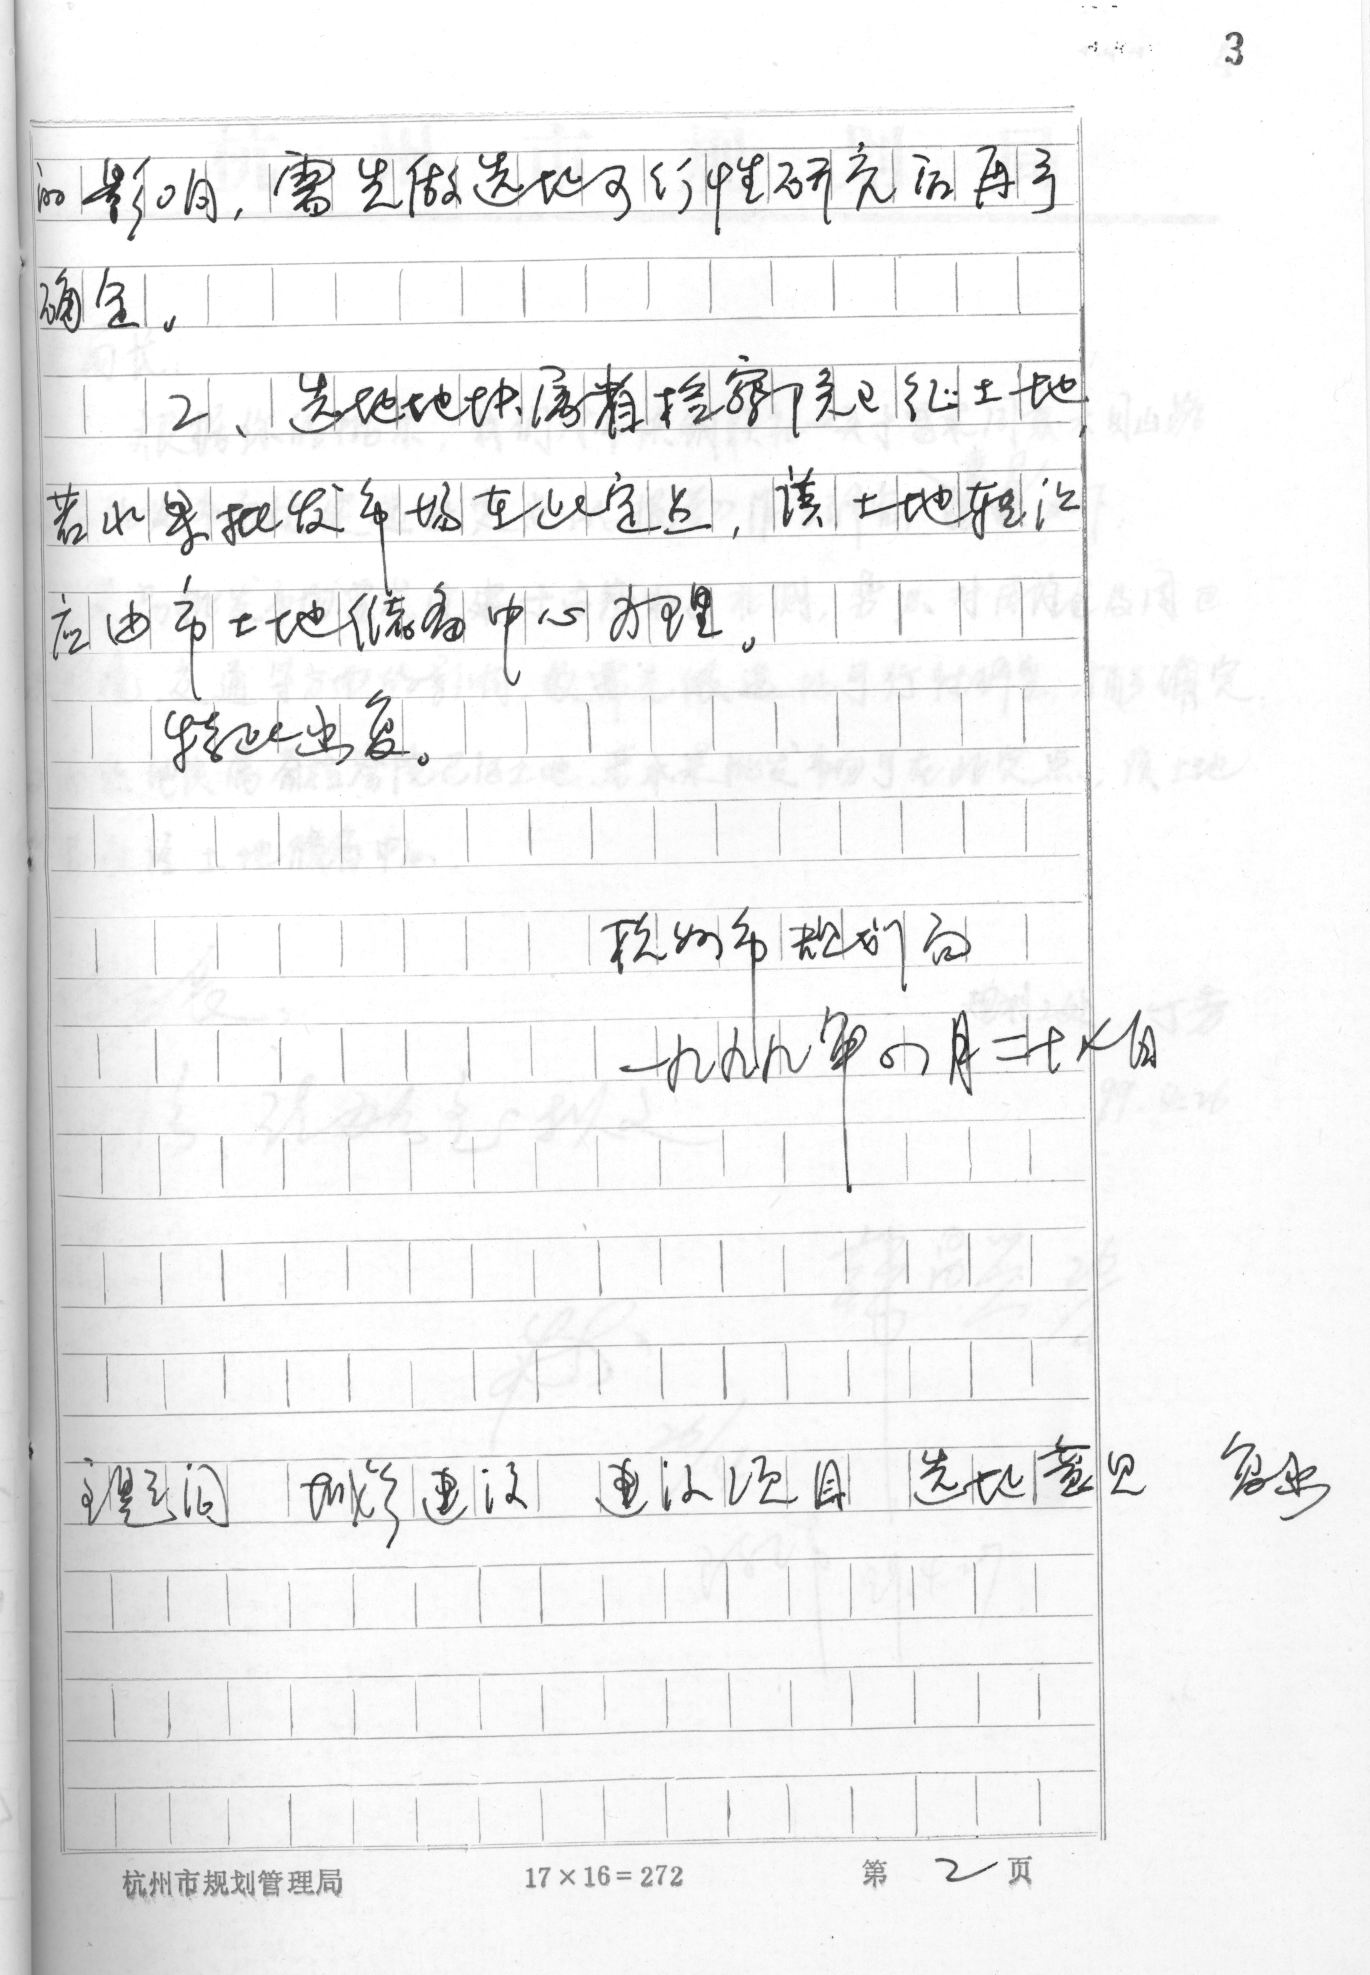 3
的影响，需先做选地可行性研究后再予
确定。
2、选地地块属省检察院已征土地，
若水果批发市场在此定点，该土地转让
应由市土地储备中心办理。
特此函复。
杭州市规划局
一九九九年四月二十八日
主题词 城乡建设 建设项目 选地意见 复函
杭州市规划管理局 17×16=272 第 2 页